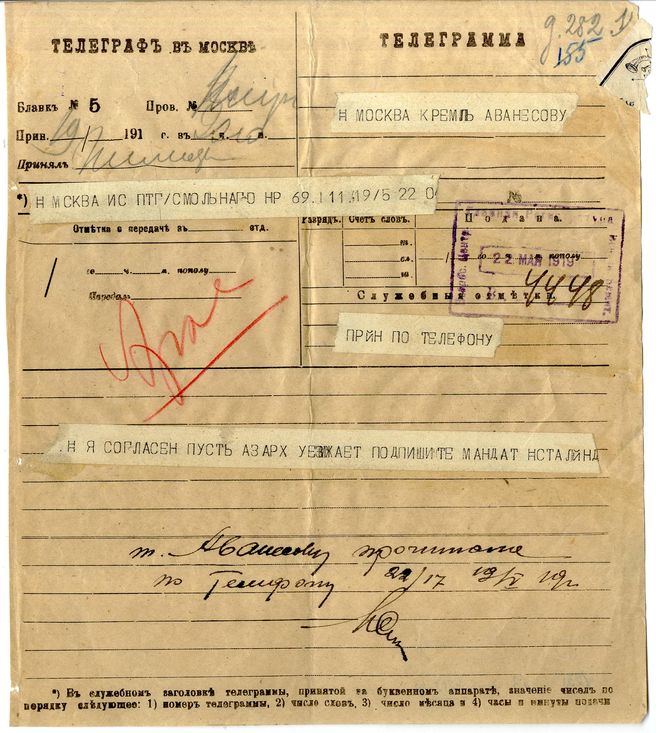 ТЕЛЕГРАФЪ ВЪ МОСКВѢ
ТЕЛЕГРАММА
д. 282
155
Бланкъ № 5 Пров. №
Прин. 19/ 191 г. въ ч. м.
Принялъ
Н МОСКВА КРЕМЛЬ АВАНЕСОВУ
*) Н МСКВА ИС ПТГ/СМОЛЬНАГО НР 69.І 11.І9/5 22 04
№
Отмѣтка о передачѣ въ отд.
го ч. м. пополу
Передалъ
Разрядъ. Счетъ словъ.
Подана.
го ч. м. пополу
22 МАЯ 1919
4448
Служебныя отмѣтки.
ПРИН ПО ТЕЛЕФОНУ
Н Я СОГЛАСЕН ПУСТЬ АЗАРХ УЕЗЖАЕТ ПОДПИШИТЕ МАНДАТ НСТАЛИНД
т. Аванесову прочитано
по Телефону 22/17 19/V 19г
*) Въ служебномъ заголовкѣ телеграммы, принятой на буквенномъ аппаратѣ, значеніе чиселъ по
порядку слѣдующее: 1) номеръ телеграммы, 2) число словъ, 3) число мѣсяца и 4) часы и минуты подачи